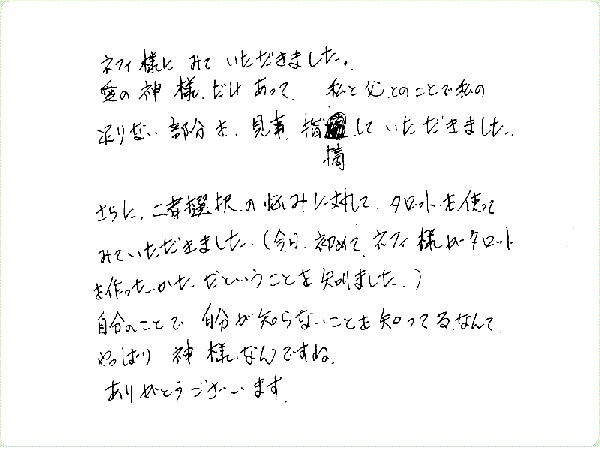 ネフィ様に みて いただきました。
愛の神様だけあって、私と父とのことで私の
足りない部分を、見事、指摘していただきました。
さらに、二者選択の悩みに対して、タロットを使って
みていただきました。(今日、初めて、ネフィ様がタロット
を作ったかただということを知りました。)
自分のことで自分が知らないことを知ってるなんて
やっぱり神様なんですね。
ありがとうございます。